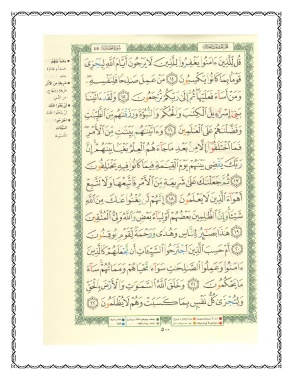 قُل لِّلَّذِينَ ءَامَنُوا۟ يَغْفِرُوا۟ لِلَّذِينَ لَا يَرْجُونَ أَيَّامَ ٱللَّهِ لِيَجْزِىَ
قَوْمًۢا بِمَا كَانُوا۟ يَكْسِبُونَ ١٤ مَنْ عَمِلَ صَـٰلِحًا فَلِنَفْسِهِۦ
وَمَنْ أَسَآءَ فَعَلَيْهَا ثُمَّ إِلَىٰ رَبِّكُمْ تُرْجَعُونَ ١٥ وَلَقَدْ ءَاتَيْنَا
بَنِىٓ إِسْرَٰٓءِيلَ ٱلْكِتَـٰبَ وَٱلْحُكْمَ وَٱلنُّبُوَّةَ وَرَزَقْنَـٰهُم مِّنَ ٱلطَّيِّبَـٰتِ
وَفَضَّلْنَـٰهُمْ عَلَى ٱلْعَـٰلَمِينَ ١٦ وَءَاتَيْنَـٰهُم بَيِّنَـٰتٍ مِّنَ ٱلْأَمْرِ
فَمَا ٱخْتَلَفُوٓا۟ إِلَّا مِنۢ بَعْدِ مَا جَآءَهُمُ ٱلْعِلْمُ بَغْيًۢا بَيْنَهُمْ إِنَّ
رَبَّكَ يَقْضِى بَيْنَهُمْ يَوْمَ ٱلْقِيَـٰمَةِ فِيمَا كَانُوا۟ فِيهِ يَخْتَلِفُونَ
١٧ ثُمَّ جَعَلْنَـٰكَ عَلَىٰ شَرِيعَةٍ مِّنَ ٱلْأَمْرِ فَٱتَّبِعْهَا وَلَا تَتَّبِعْ
أَهْوَآءَ ٱلَّذِينَ لَا يَعْلَمُونَ ١٨ إِنَّهُمْ لَن يُغْنُوا۟ عَنكَ مِنَ ٱللَّهِ
شَيْـًٔا وَإِنَّ ٱلظَّـٰلِمِينَ بَعْضُهُمْ أَوْلِيَآءُ بَعْضٍ وَٱللَّهُ وَلِىُّ ٱلْمُتَّقِينَ
١٩ هَـٰذَا بَصَـٰٓئِرُ لِلنَّاسِ وَهُدًى وَرَحْمَةٌ لِّقَوْمٍ يُوقِنُونَ ٢٠
أَمْ حَسِبَ ٱلَّذِينَ ٱجْتَرَحُوا۟ ٱلسَّيِّـَٔاتِ أَن نَّجْعَلَهُمْ كَٱلَّذِينَ
ءَامَنُوا۟ وَعَمِلُوا۟ ٱلصَّـٰلِحَـٰتِ سَوَآءً مَّحْيَاهُمْ وَمَمَاتُهُمْ سَآءَ
مَا يَحْكُمُونَ ٢١ وَخَلَقَ ٱللَّهُ ٱلسَّمَـٰوَٰتِ وَٱلْأَرْضَ بِٱلْحَقِّ
وَلِتُجْزَىٰ كُلُّ نَفْسٍۭ بِمَا كَسَبَتْ وَهُمْ لَا يُظْلَمُونَ ٢٢
٥٠٠